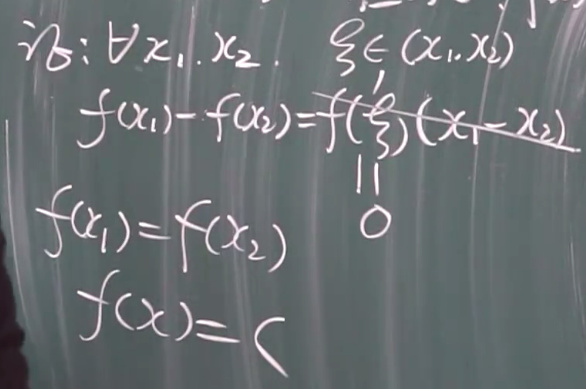 证: ∀x₁.x₂. ξ∈(x₁.x₂)
f(x₁)-f(x₂)=f'(ξ)(x₁-x₂)
||
0
f(x₁)=f(x₂)
f(x)=C